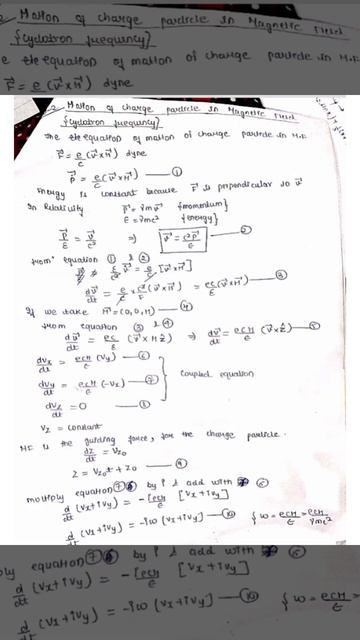 Motion of charge particle in Magnetic Field
{Cyclotron frequency}
e equation of motion of charge particle in M.F.
F⃗ = e/c (v⃗ × H⃗) dyne
Motion of charge particle in Magnetic Field
{Cyclotron frequency}
The equation of motion of charge particle in M.F.
F⃗ = e/c (v⃗ × H⃗) dyne
P⃗ = e/c (v⃗ × H⃗) — ①
Energy is constant because F⃗ is perpendicular to v⃗
In Relativity P⃗ = γmv⃗ {momentum}
E = γmc² {energy}
P⃗/E = v⃗/c² ⇒ v⃗ = c²P⃗/E — ②
from equation ① & ②
E/c² v⃗ = e/c [v⃗ × H⃗]
dv⃗/dt = e/c × c²/E (v⃗ × H⃗) = ec/E (v⃗ × H⃗) — ③
If we take H⃗ = (0,0,H) — ④
from equation ③ & ④
dv⃗/dt = ec/E (v⃗ × Hẑ) ⇒ dv⃗/dt = ecH/E (v⃗ × ẑ) — ⑤
dvx/dt = ecH/E (vy) — ⑥
dvy/dt = ecH/E (-vx) — ⑦
} Coupled equation
dvz/dt = 0 — ⑧
vz = constant
M.F. is the guiding force, for the charge particle.
dz/dt = vz0
z = vz0t + z0 — ⑨
multiply equation ⑦ by i & add with ⑥
d/dt (vx + ivy) = -[ecH/E] [vx + ivy]
d/dt (vx + ivy) = -iω (vx + ivy) — ⑩ { ω = ecH/E = ecH/γmc²
ply equation ⑦ by i & add with ⑥
d/dt (vx + ivy) = -[ecH/E] [vx + ivy]
d/dt (vx + ivy) = -iω (vx + ivy) — ⑩ { ω = ecH/E =